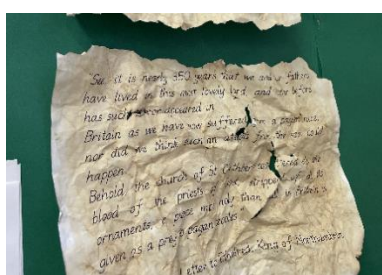 "See, it is nearly 350 years that we and our fathers
have lived in this most lovely land, and never before
has such terror appeared in
Britain as we have now suffered from a pagan race,
nor did we think such an attack from the sea could
happen.
Behold, the church of St Cuthbert spattered by the
blood of the priests of God, stripped of all its
ornaments, a place more holy than all in Britain is
given as a prey to pagan peoples."
Letter to Ethelred, King of Northumbria.